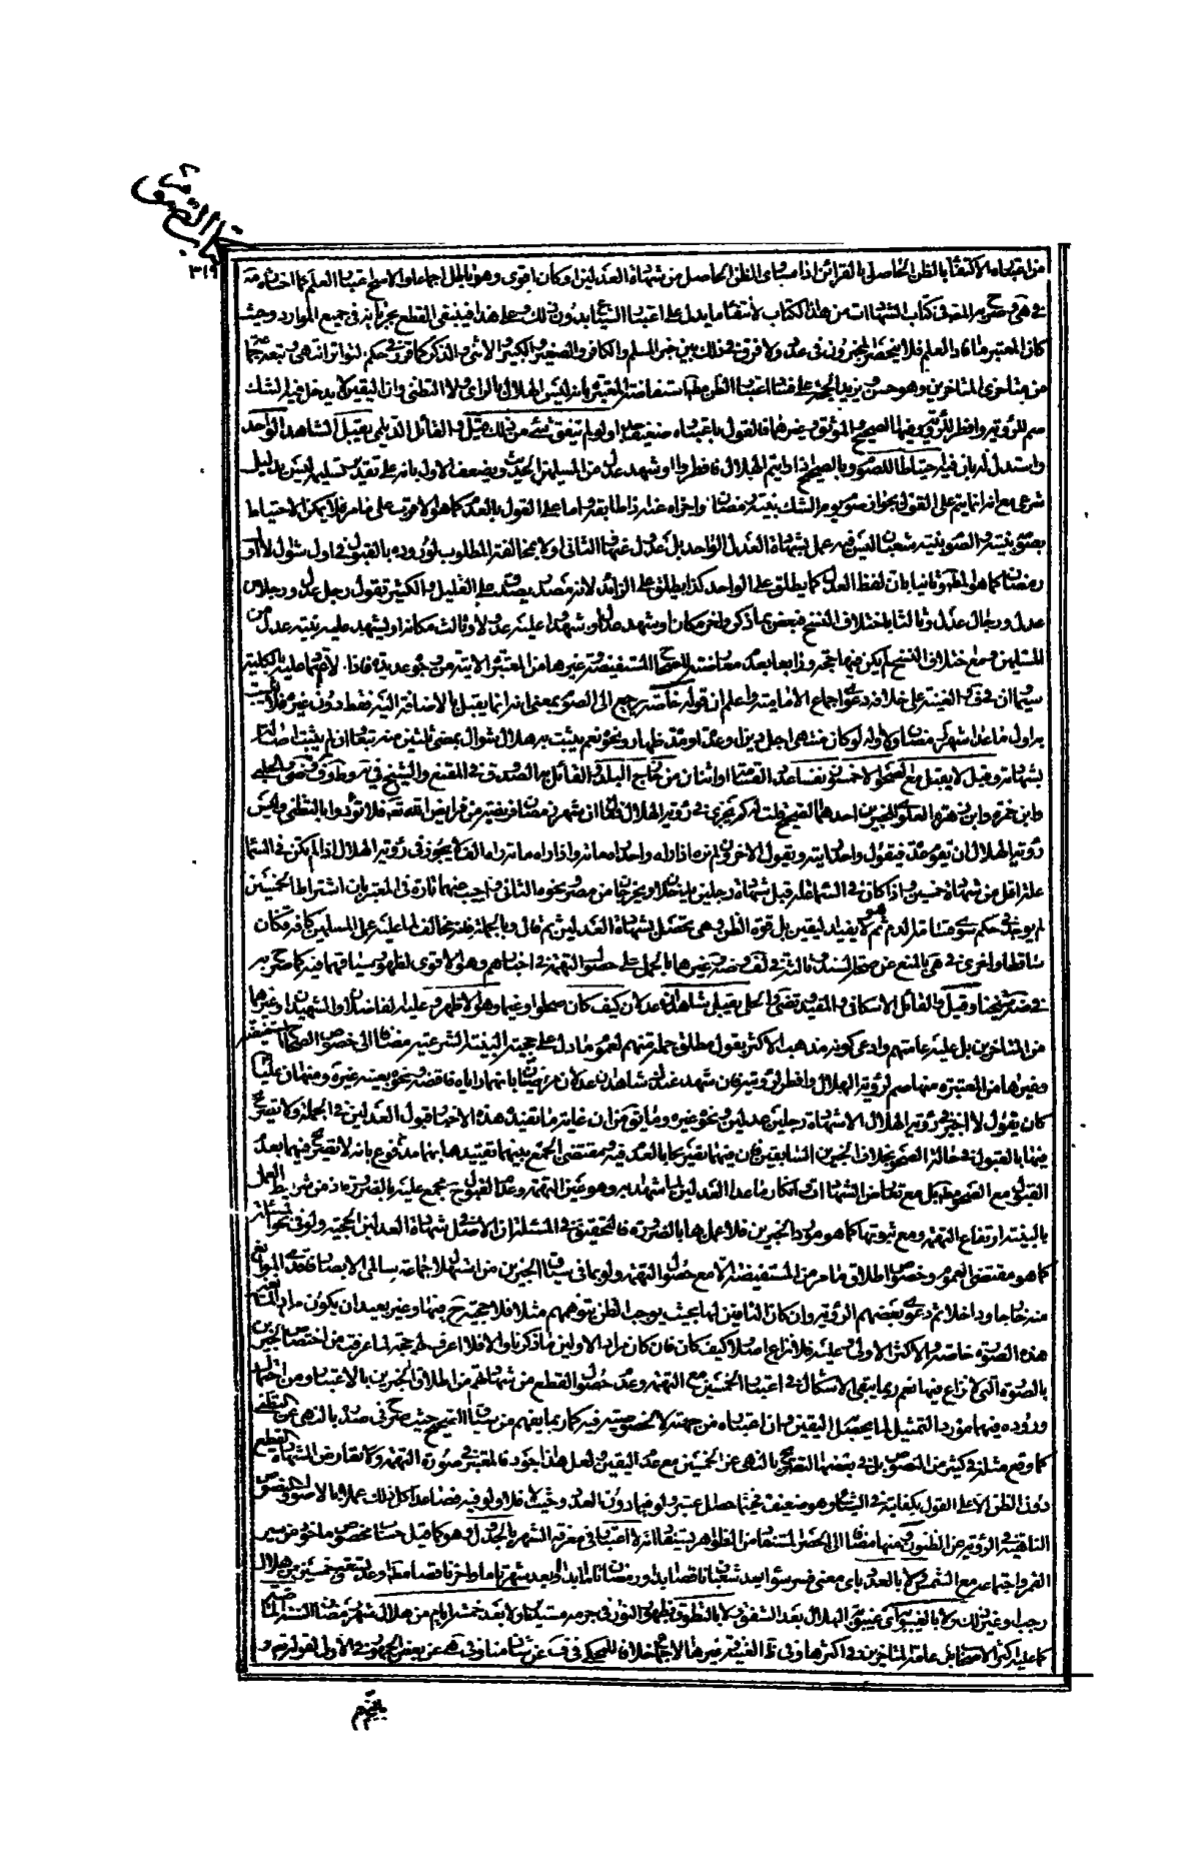 كتاب الصوم
٣١٩
من اعتباره الاكتفاء بالظن الحاصل بالقرائن اذا ساوى الظن الحاصل من شهادة العدلين او كان اقوى وهو باطل اجماعا والاصح اعتبار العلم كما اختاره
في كتاب الشهادات من هذا الكتاب لانتفاء ما يدل على اعتبار الشياع بدون ذلك وعلى هذا فينبغي القطع بجريانه في جميع الموارد وحيث
كان المعتبر ما افاد العلم فلا ينحصر المخبرون في عدد ولا فرق في ذلك بين خبر المسلم والكافر والصغير والكبير والانثى والذكر كما قرر في حكم التواتر انتهى
من متاخري المتاخرين وهو حسن ويزيد الحجة على اعتبار الظن استفاضة المعتبرة بانه ليس الهلال بالراى ولا التظني وان اليقين لا يدخل فيه الشك
صم للرؤية وافطر للرؤية وفيها الصحيح والموثق وغيرهما فالقول باعتباره ضعيف ولو لم يتفق شئ من ذلك قيل والقائل الديلمي يقبل الشاهد الواحد
واستدل له بان فيه احتياطا للصوم وبالصحيح اذا رايتم الهلال فافطروا او شهد عدل من المسلمين الحديث ويضعف الاول بانه على تقدير تسليمه ليس بدليل
شرعي مع انه انما يتم على القول بجواز صوم يوم الشك بنية رمضان واجزاه عنه اذا طابقه اما على القول بالعدم كما هو الاقرب على ما مر فلا يمكن الاحتياط
بصومه بنيته والصوم بنية شعبان ليس فيه عمل بشهادة العدل الواحد بل عدول عنها والثاني اولا بمخالفته المطلوب لوروده بالقبول في اول شوال لا اول
رمضان كما هو المطلوب وثانيا بان لفظ العدل كما يطلق على الواحد كذا يطلق على الزائد لانه مصدر يصدق على القليل والكثير تقول رجل عدل ورجلان
عدل ورجال عدل وثالثا باختلاف النسخ فبعض بما ذكر واخر مكان او شهد عدل او شهدوا عليه عدول وثالث مكانه او يشهد عليه بينة عدول من
المسلمين ومع اختلاف النسخ لم يكن فيها حجة ورابعا بعدم معارضته للصحاح المستفيضة وغيرها من المعتبرة
سيما ان في الغنية على خلافه دعوى اجماع الامامية واعلم ان قوله خاصة يرجع الى الصوم بمعنى انه انما يقبل بالاضافة اليه فقط دون غيره فلا يثبت
به اوله ما عدا شهر رمضان ولا اوله لو كان منتهى اجل دين او عدة او مدة ظهار ونحوه نعم يثبت به هلال شوال بمضي ثلثين منه تبعا وان لم يثبت اصالة
بشهادته وقيل لا يقبل مع الصحو الا خمسون نفسا عدد القسامة او اثنان من خارج البلد والقائل به الصدوق في المقنع والشيخ في
وابن حمزة وابن زهرة والحلبي للخبرين احدهما الصحيح قلت له كم يجزي في رؤية الهلال فقال ان شهر رمضان فريضة من فرايض الله تعالى فلا تؤدوا بالتظني وليس
رؤية الهلال ان يقوم عدة فيقول واحد رايته ويقول الاخرون لم نره اذا راه واحد راه مائة واذا راه مائة راه الف ولا يجوز في رؤية الهلال اذا لم يكن في السماء
علة اقل من شهادة خمسين واذا كان في السماء علة قبل شهادة رجلين يدخلان ويخرجان من مصر ونحوه الثاني واجيب عنهما تارة في المعتبر بان اشتراط الخمسين
لم يوجد في حكم سوى قسامة الدم ثم هو لا يفيد اليقين بل قوة الظن وهي تحصل بشهادة العدلين ثم قال وبالجملة فانه مخالف لما عليه عمل المسلمين كافة فكان
ساقطا واخرى في هى بالمنع عن صحة السند وثالثة في لف وغيرها بالحمل على حصول التهمة في اخبارهم وهو الاقوى لظهور سياقهما فيه كما صرح به
في وقيل والقائل الاسكافي والمفيد والمرتضى والحلي يقبل شاهدان عدلان كيف كان صحوا او غيما وهو الاظهر وعليه الفاضلان والشهيدان وغيرهما
من المتاخرين بل عليه عامتهم وادعى كونه مذهب الاكثر بقول مطلق جملة منهم لعموم ما دل على حجية البينة الشرعية مضافا الى خصوص الصحاح المستفيضة
وغيرها من المعتبرة منها صم لرؤية الهلال وافطر لرؤيته فان شهد عندك شاهدان عدلان مرضيان بانهما راياه فاقضه ونحوه بعينه غيره ومنها ان عليا
كان يقول لا اجيز في رؤية الهلال الا شهادة رجلين عدلين ونحوه غيره وما يتوهم من ان غاية ما تفيده هذه الاخبار قبول العدلين في الجملة ولا تصريح
فيها بالقبول في حالة الصحو بخلاف الخبرين السابقين فان فيهما تصريحا بالعدم فيه ومقتضى الجمع بينهما تقييدها بهما مدفوع بانه لا تصريح فيهما بعدم
القبول مع الصحو مطلقا بل مع تعارض الشهادات وانكار ما عدا العدلين لما شهدا به وهو عين التهمة وعدم القبول ح مجمع عليه بالضرورة اذ من شرايط العمل
بالبينة ارتفاع التهمة ومع ثبوتها كما هو مورد الخبرين فلا عمل بها بالضرورة فالتحقيق في المسئلة ان الاصل شهادة العدلين الحجية ولو في نحو المسئلة
كما هو مقتضى العموم وخصوص اطلاق ما مر من المستفيضة الا مع حصول التهمة ولو بما في سياق الخبرين من استهلال جماعة سالمي الابصار فاقدي الموانع
عنه خارجا وداخلا ثم دعوى بعضهم الرؤية وان كان النافين لها بحيث يوجب الظن بتوهمهم مثلا فلا حجية ح فيها وغير بعيد ان يكون مراد المانعين
هذه الصورة خاصة والاكثر الاولى وعليه فلا نزاع اصلا كيف كان فان كان مراد الاولين ما ذكرنا والا فلا اعرف لهم حجة لما عرفت من اختصاص الخبرين
بالصورة التي لا نزاع فيها نعم ربما يبقى الاشكال في اعتبار الخمسين مع التهمة وعدم حصول القطع من شهادتهم من اطلاق الخبرين بالاعتبار ومن احتمال
وروده فيهما مورد التمثيل لما يحصل اليقين وان اعتباره من جهته لا لخصوصية فيه كما ربما يفهم من سياق الصحيح حيث صرح في صدره بالنهي عن التظني
كما وقع مثله في كثير من النصوص بل في بعضها التصريح بالنهي عن الخمسين مع عدم اليقين ولعل هذا اجود فالمعتبر في صورة التهمة ولا تعارض الشهادة القطع
دون الظن الا على القول بكفايته في الشياع وهو ضعيف فحيثما حصل اعتبر ولو فيما دون العدد وحيث لا فلا ولو فيه فصاعدا كل ذلك عملا بالاصول والنصوص
الناهية في الرؤية عن الظنون ومنها مضافا الى الحصر المستفاد من الظواهر يستفاد انه لا اعتبار في معرفة الشهر بالجدول وهو كما قيل حساب مخصوص ماخوذ من سير
القمر واجتماعه مع الشمس ولا بالعدد باى معنى فسر سواء بعد شعبان ناقصا ابدا ورمضان تاما ابدا او بعد شهر تاما واخر ناقصا مطلقا وعد تسعة وخمسين من هلال
رجب او غير ذلك ولا بالغيبوبة اى غيبوبة الهلال بعد الشفق ولا بالتطوق بظهور النور في جرمه مستديرا ولا بعد خمسة ايام من هلال شهر رمضان السنة الماضية
كما عليه اكثر الاصحاب بل عامة المتاخرين في اكثرها وفي الغنية وغيرها الاجماع خلافا للمحكي في ف عن شاذ منا وفي عن بعض الجمهور في الاول لقوله تعالى و
بالنجم